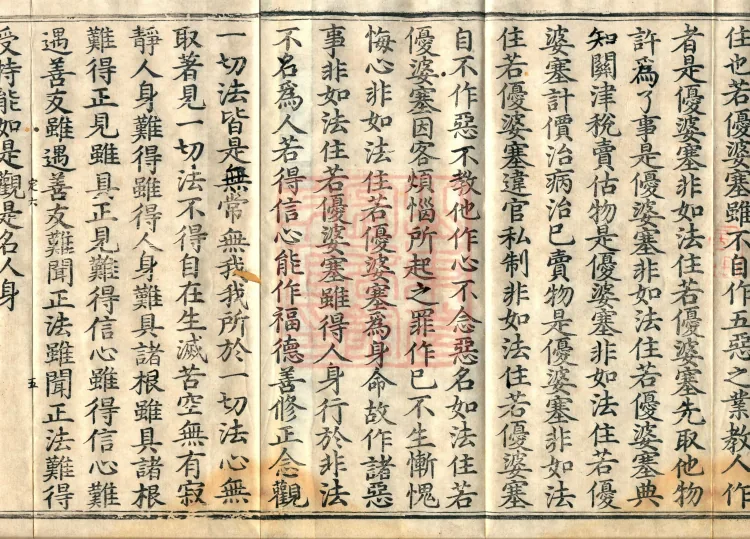 住也若優婆塞雖不自作五惡之業教人作
者是優婆塞非如法住若優婆塞先取他物
許為了事是優婆塞非如法住若優婆塞典
知關津稅賣估物是優婆塞非如法住若優
婆塞計價治病治已賣物是優婆塞非如法
住若優婆塞違官私制非如法住若優婆塞
自不作惡不教他作心不念惡名如法住若
優婆塞因客煩惱所起之罪作已不生慚愧
悔心非如法住若優婆塞為身命故作諸惡
事非如法住若優婆塞雖得人身行於非法
不名為人若得信心能作福德善修正念觀
一切法皆是無常無我我所於一切法心無
取著見一切法不得自在生滅苦空無有寂
靜人身難得雖得人身難具諸根雖具諸根
難得正見雖具正見難得信心雖得信心難
遇善友雖遇善友難聞正法雖聞正法難得
定六 五
受持能如是觀是名人身